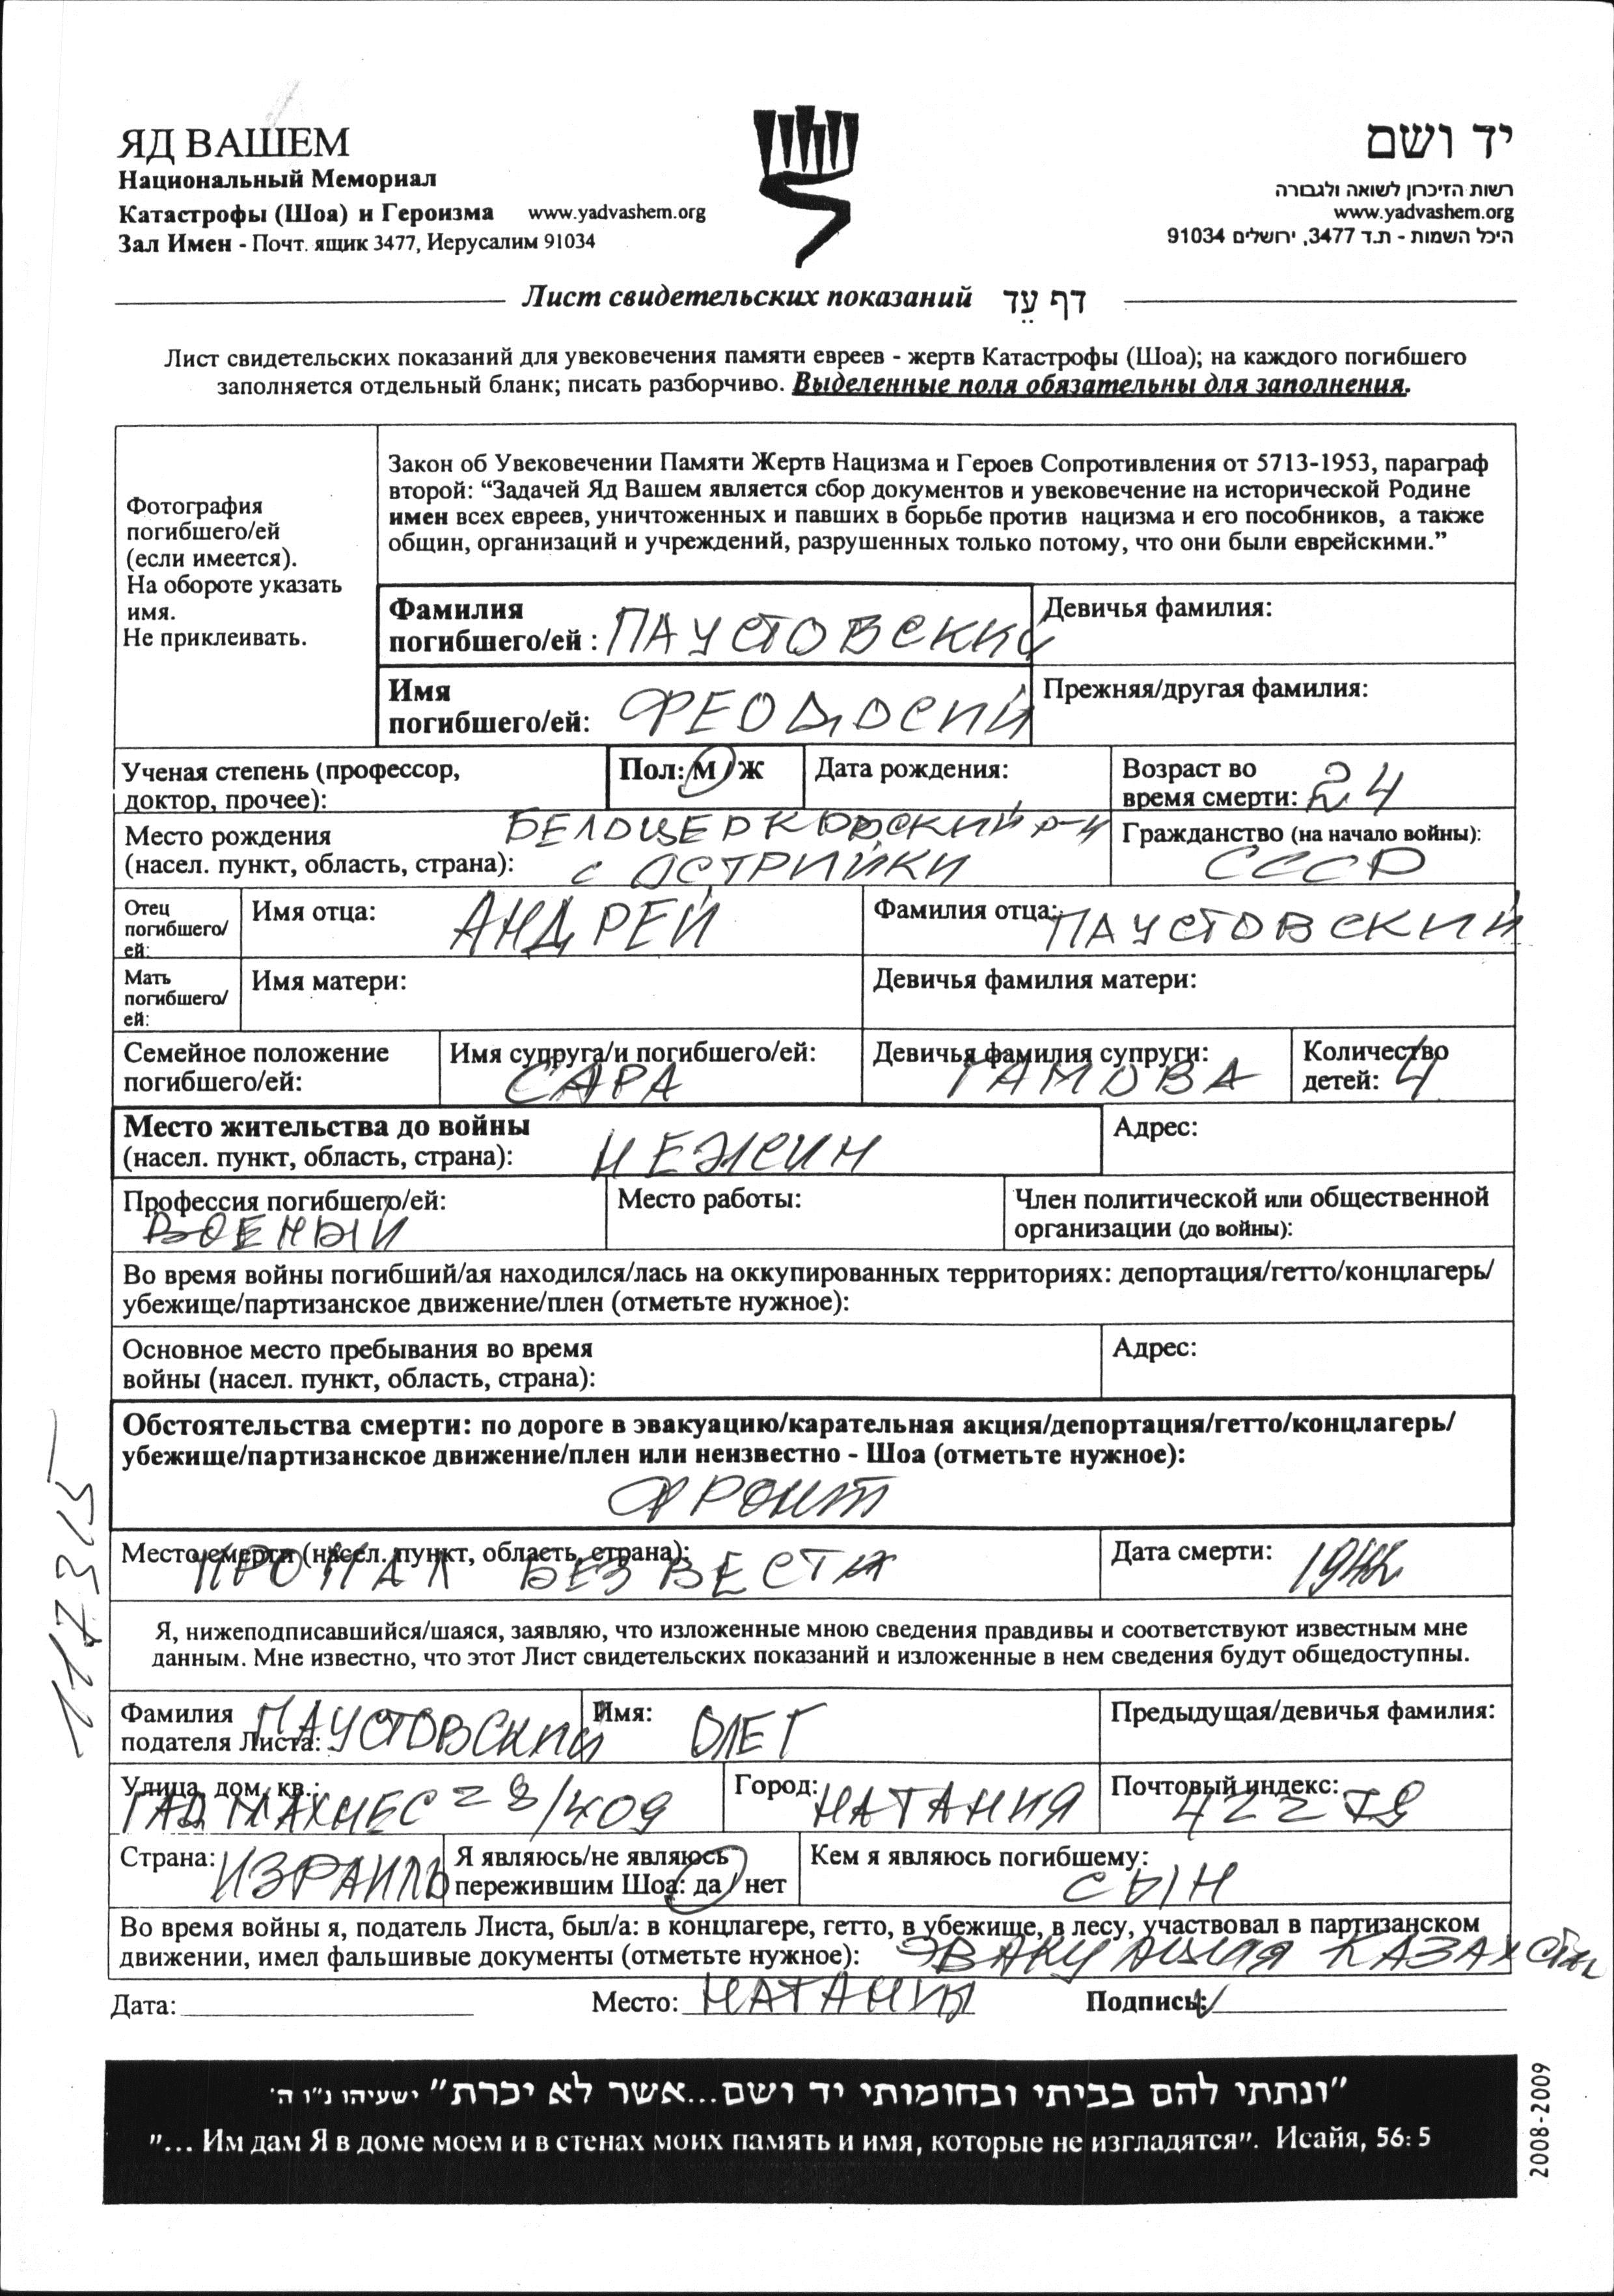 ЯД ВАШЕМ
Национальный Мемориал
Катастрофы (Шоа) и Героизма www.yadvashem.org
Зал Имен - Почт. ящик 3477, Иерусалим 91034
יד ושם
רשות הזיכרון לשואה ולגבורה
www.yadvashem.org
היכל השמות - ת.ד 3477, ירושלים 91034
Лист свидетельских показаний דף עֵד
Лист свидетельских показаний для увековечения памяти евреев - жертв Катастрофы (Шоа); на каждого погибшего
заполняется отдельный бланк; писать разборчиво. Выделенные поля обязательны для заполнения.
Фотография
погибшего/ей
(если имеется).
На обороте указать
имя.
Не приклеивать.
Закон об Увековечении Памяти Жертв Нацизма и Героев Сопротивления от 5713-1953, параграф
второй: “Задачей Яд Вашем является сбор документов и увековечение на исторической Родине
имен всех евреев, уничтоженных и павших в борьбе против нацизма и его пособников, а также
общин, организаций и учреждений, разрушенных только потому, что они были еврейскими.”
Фамилия
погибшего/ей : ПАУСТОВСКИЙ
Девичья фамилия:
Имя
погибшего/ей: ФЕОДОСИЙ
Прежняя/другая фамилия:
Ученая степень (профессор,
доктор, прочее):
Пол: М / Ж
Дата рождения:
Возраст во
время смерти: 24
Место рождения БЕЛОЦЕРКОВСКИЙ р-н
(насел. пункт, область, страна): с ОСТРИЙКИ
Гражданство (на начало войны):
СССР
Отец
погибшего/
ей:
Имя отца: АНДРЕЙ
Фамилия отца: ПАУСТОВСКИЙ
Мать
погибшего/
ей:
Имя матери:
Девичья фамилия матери:
Семейное положение
погибшего/ей:
Имя супруга/и погибшего/ей:
САРА
Девичья фамилия супруги:
ГАМОВА
Количество
детей: 4
Место жительства до войны
(насел. пункт, область, страна): НЕЖИН
Адрес:
Профессия погибшего/ей:
ВОЕНЫЙ
Место работы:
Член политической или общественной
организации (до войны):
Во время войны погибший/ая находился/лась на оккупированных территориях: депортация/гетто/концлагерь/
убежище/партизанское движение/плен (отметьте нужное):
Основное место пребывания во время
войны (насел. пункт, область, страна):
Адрес:
Обстоятельства смерти: по дороге в эвакуацию/карательная акция/депортация/гетто/концлагерь/
убежище/партизанское движение/плен или неизвестно - Шоа (отметьте нужное):
ФРОНТ
Место смерти (насел. пункт, область, страна):
ПРОПАЛ БЕЗ ВЕСТИ
Дата смерти: 1942
Я, нижеподписавшийся/шаяся, заявляю, что изложенные мною сведения правдивы и соответствуют известным мне
данным. Мне известно, что этот Лист свидетельских показаний и изложенные в нем сведения будут общедоступны.
Фамилия
подателя Листа: ПАУСТОВСКИЙ
Имя: ОЛЕГ
Предыдущая/девичья фамилия:
Улица, дом, кв.:
ГАД МАХНЕС 28/409
Город: НАТАНИЯ
Почтовый индекс:
42279
Страна: ИЗРАИЛЬ
Я являюсь/не являюсь
пережившим Шоа: да / нет
Кем я являюсь погибшему:
СЫН
Во время войны я, податель Листа, был/а: в концлагере, гетто, в убежище, в лесу, участвовал в партизанском
движении, имел фальшивые документы (отметьте нужное): ЭВАКУАЦИЯ КАЗАХСТАН
Дата: Место: НАТАНИЯ Подпись:
"ונתתי להם בביתי ובחומותי יד ושם...אשר לא יכרת" ישעיהו נ"ו ה'
"... Им дам Я в доме моем и в стенах моих память и имя, которые не изгладятся". Исайя, 56: 5
2008-2009
117315